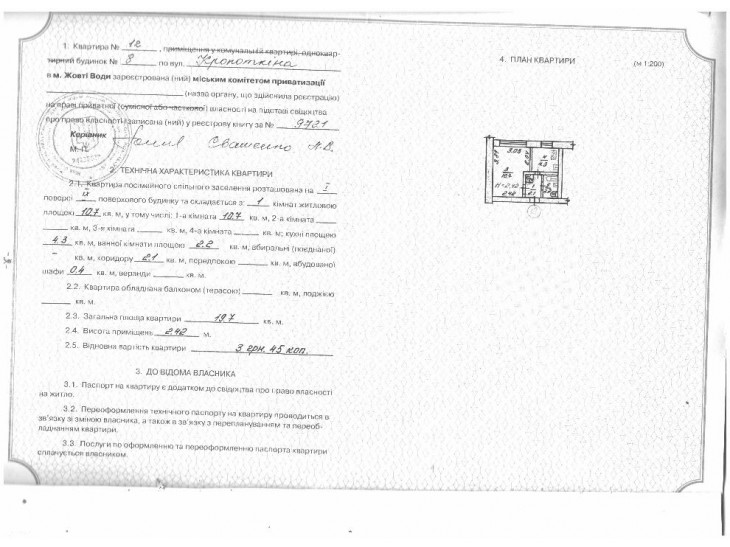 1. Квартира № 12 , приміщення у комунальній квартирі, одноквар-
тирний будинок № 8 по вул. Кропоткіна
в м. Жовті Води зареєстрована (ний) міським комітетом приватизації
(назва органу, що здійснила реєстрацію)
на праві приватної (сумісної або часткової) власності на підставі свідоцтва
про право власності і записана (ний) у реєстрову книгу за № 9721
Керівник
М. П.
2. ТЕХНІЧНА ХАРАКТЕРИСТИКА КВАРТИРИ
2.1. Квартира посімейного спільного заселення розташована на I
поверсі поверхового будинку та складається з: 1 кімнат житловою
площею 10.7 кв. м, у тому числі: 1-а кімната 10.7 кв. м, 2-а кімната
кв. м, 3-я кімната кв. м, 4-а кімната кв. м; кухні площею
4.3 кв. м, ванної кімнати площею 2.2 кв. м, вбиральні (поєднаної)
– кв. м, коридору 2.1 кв. м, передпокою кв. м, вбудованої
шафи 0.4 кв. м, веранди кв. м.
2.2. Квартира обладнана балконом (терасою) кв. м, лоджією
кв. м.
2.3. Загальна площа квартири 19.7 кв. м.
2.4. Висота приміщень 2.42 м.
2.5. Відновна вартість квартири 3 грн. 45 коп.
3. ДО ВІДОМА ВЛАСНИКА
3.1. Паспорт на квартиру є додатком до свідоцтва про право власності
на житло.
3.2. Переоформлення технічного паспорту на квартиру проводиться в
зв'язку зі зміною власника, а також в зв'язку з переплануванням та переоб-
ладнанням квартири.
3.3 Послуги по оформленню та переоформленню паспорта квартири
сплачується власником.
4. ПЛАН КВАРТИРИ (м 1:200)